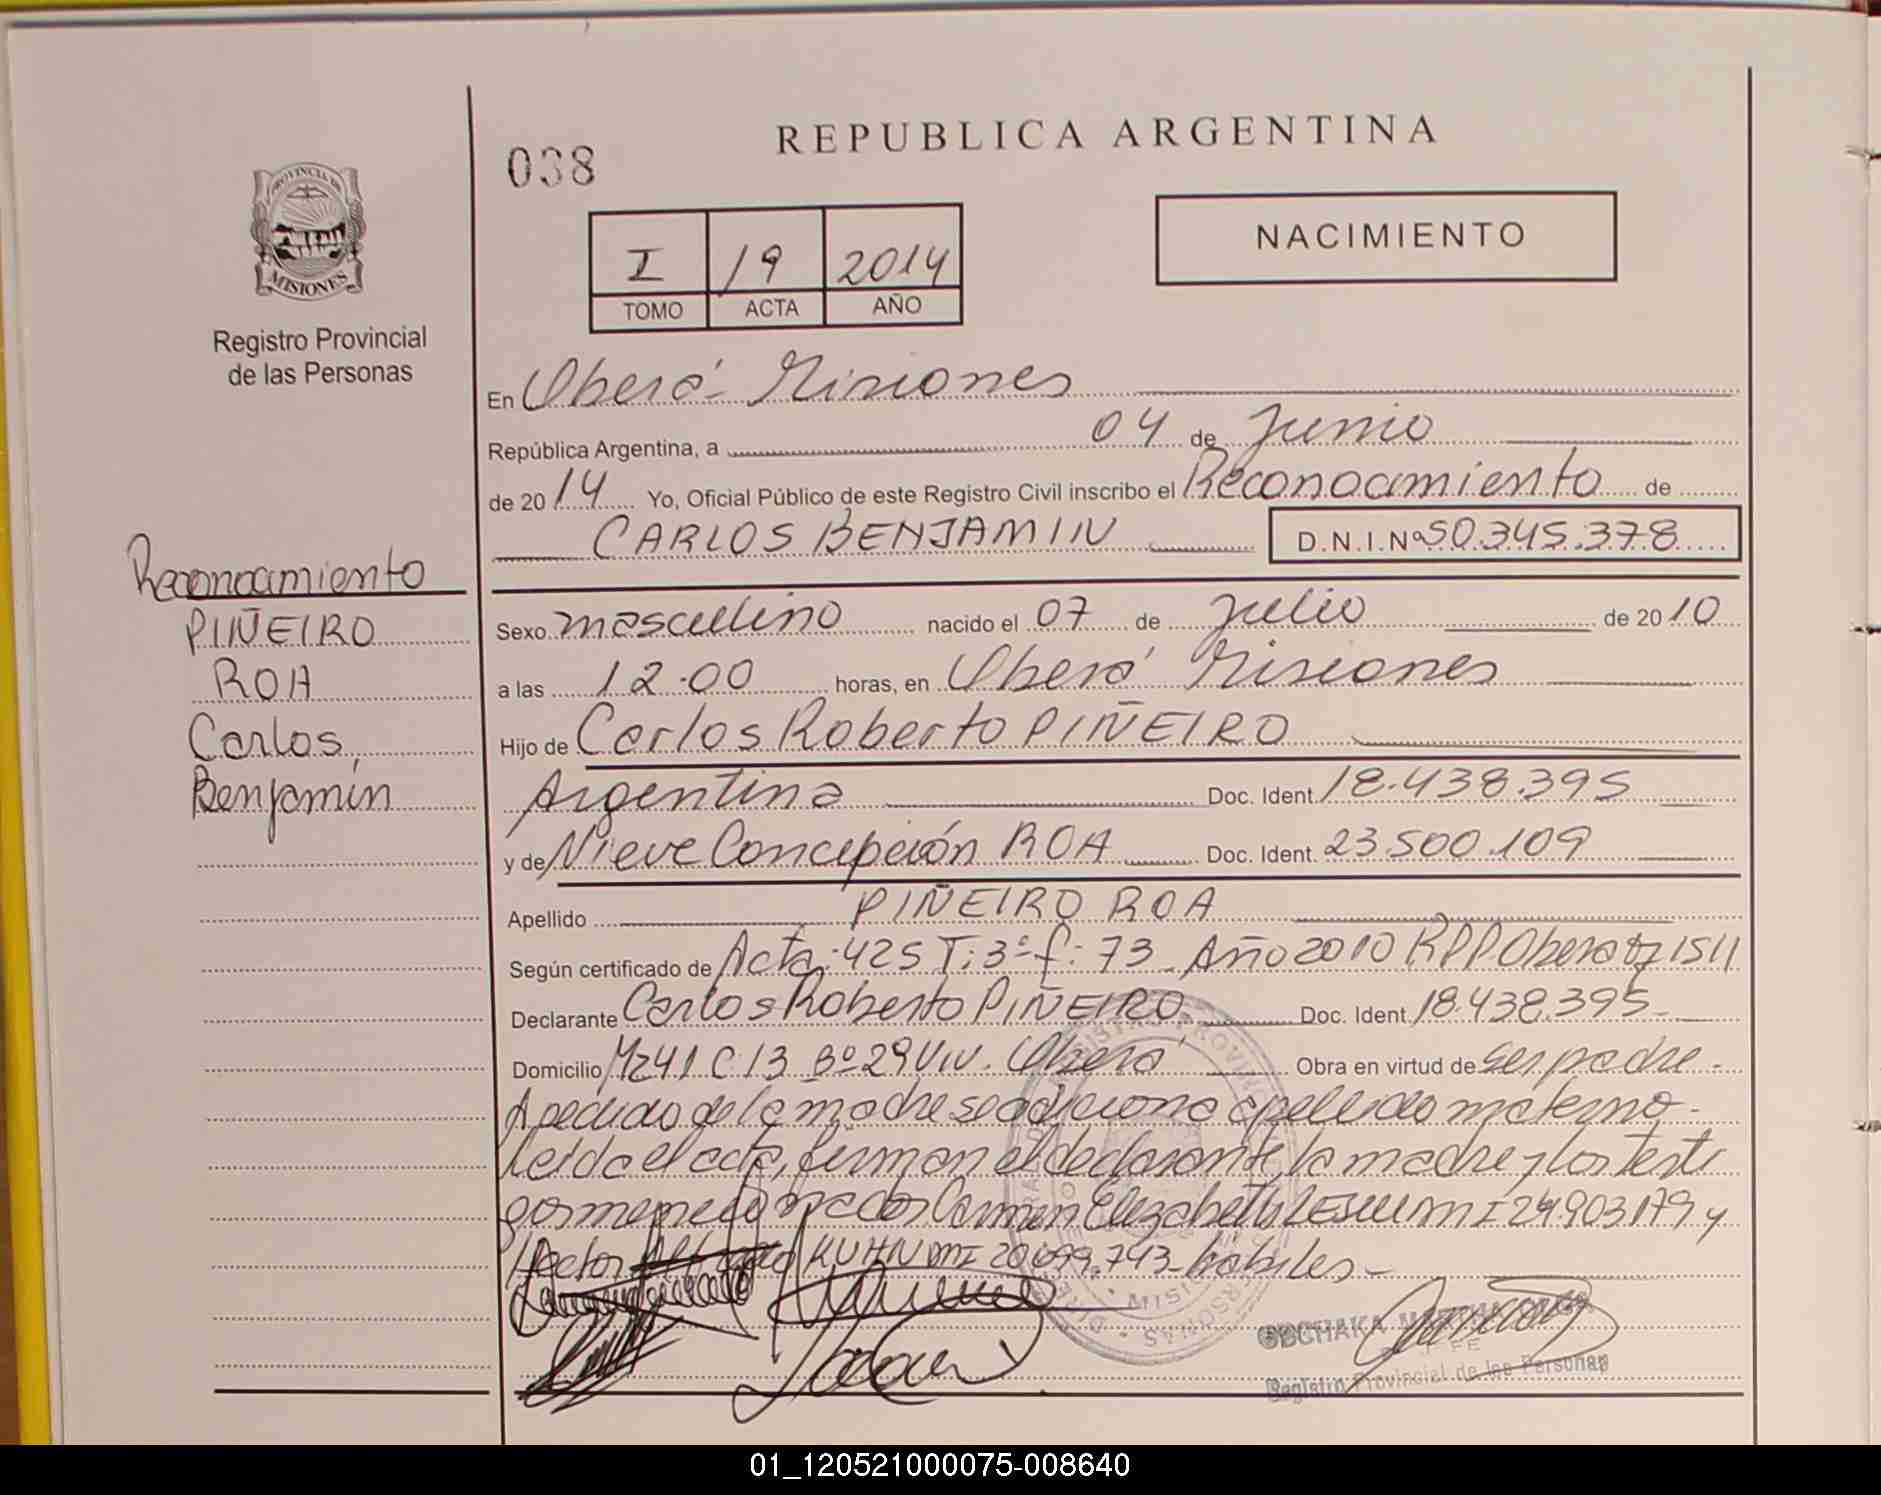 REPUBLICA ARGENTINA
038
PROVINCIA DE
MISIONES
Registro Provincial
de las Personas
I 19 2014
TOMO ACTA AÑO
NACIMIENTO
En Oberá - Misiones
República Argentina, a 04 de Junio
de 2014 Yo, Oficial Público de este Registro Civil inscribo el Reconocimiento de
CARLOS BENJAMIN D.N.I.Nº 50.345.378
Reconocimiento
PIÑEIRO
ROA
Carlos
Benjamín
Sexo masculino nacido el 07 de Julio de 2010
a las 12.00 horas, en Oberá Misiones
Hijo de Carlos Roberto PIÑEIRO
Argentina Doc. Ident. 18.438.395
y de Nieve Concepción ROA Doc. Ident. 23.500.109
Apellido PIÑEIRO ROA
Según certificado de Acta: 425 T: 3º f: 73 - Año 2010 RPP Oberá 1511
Declarante Carlos Roberto PIÑEIRO Doc. Ident. 18.438.395 -
Domicilio Mz 41 C 13 Bº 29 Viv. Oberá Obra en virtud de ser padre -
A pedido de la madre se adiciona apellido materno -
Leida el acta, firman el declarante, la madre y los testi
gos Carmen Elizabeth MI 24.903.179 y
Hector KUHN MI 743 - hábiles -
Registro Provincial de las Personas
01_120521000075-008640